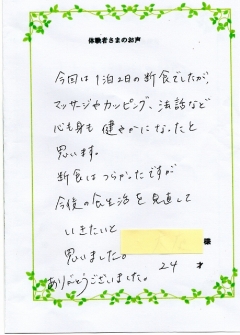 体験者さまのお声
今回は1泊2日の断食でしたが、
マッサージやカッピング、法話など
心も身も健やかになったと
思います。
断食はつらかったですが
今後の食生活を見直して
いきたいと
思いました。
様
24才
ありがとうございました。